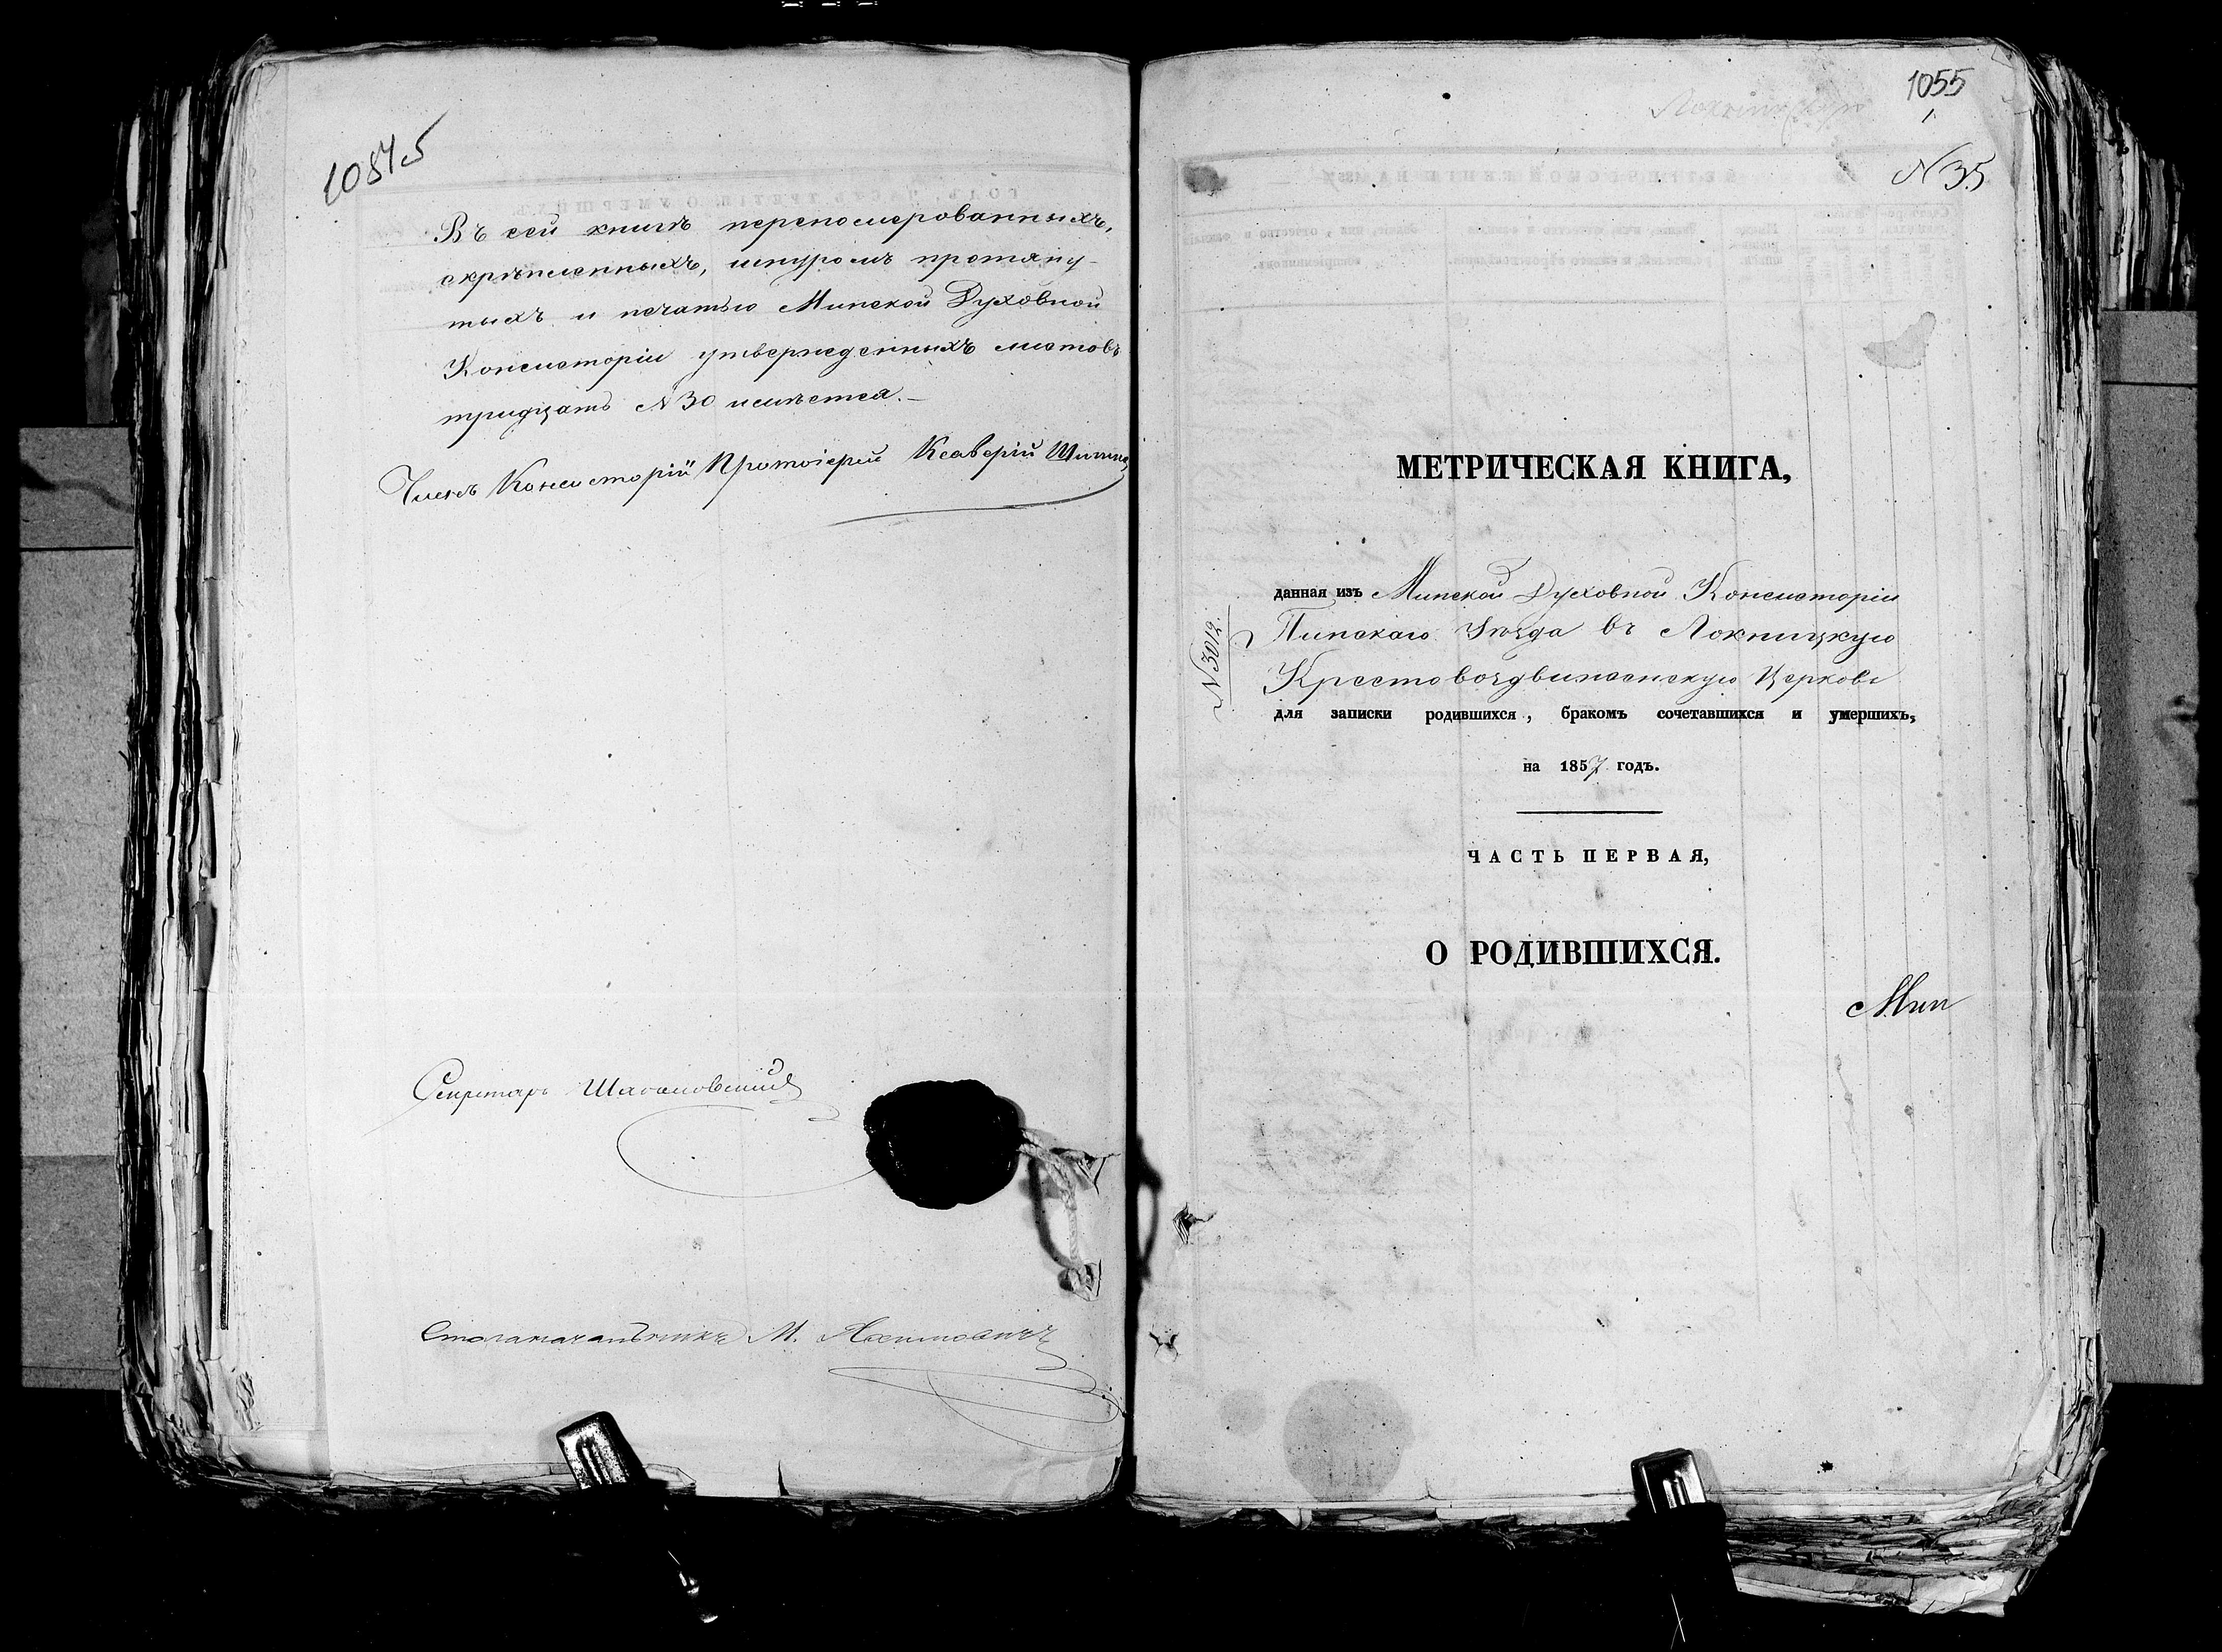 Въ сей книгѣ переномерованныхъ,
скрѣпленныхъ, шнуромъ протяну-
тыхъ и печатью Минской Духовной
Консисторіи утвержденныхъ листовъ
тридцать №30 имѣется.—
Членъ Консисторіи Протоіерей Ксаверій
Секретарь
Столоначальникъ М. Яхимовичъ
1055
1.
№35
МЕТРИЧЕСКАЯ КНИГА,
данная изъ Минской Духовной Консисторіи
Пинскаго Уѣзда въ Локницкую
Крестовоздвиженскую Церковь
№3012.
для записки родившихся, бракомъ сочетавшихся и умершихъ,
на 1857 годъ.
ЧАСТЬ ПЕРВАЯ,
О РОДИВШИХСЯ.
Мин